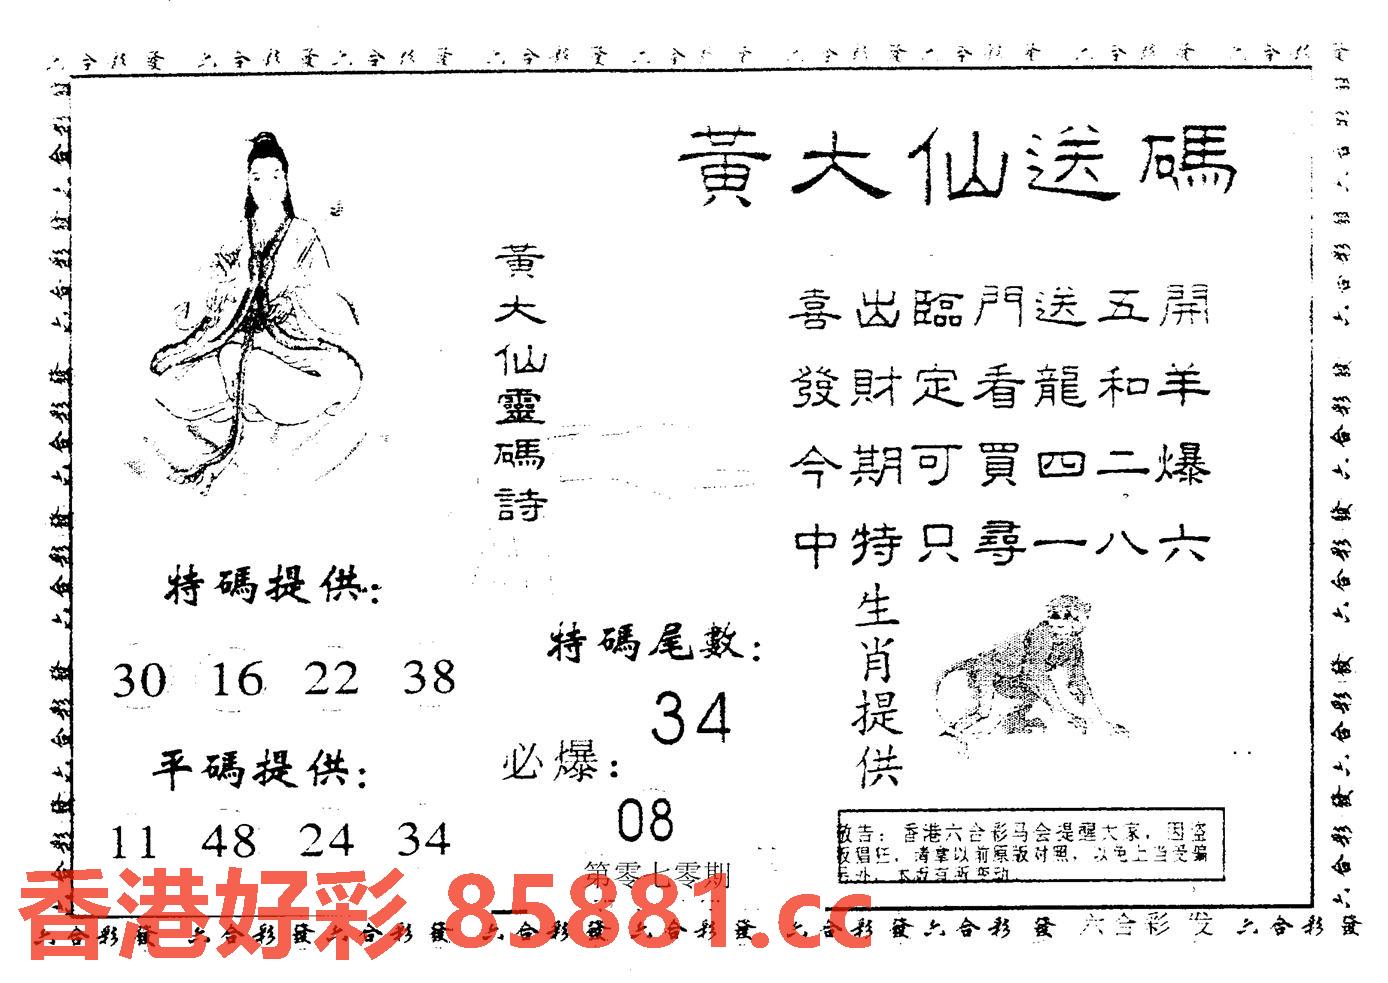 六合彩發 六合彩發 六合彩發 六合彩發 六合彩發 六合彩發 六合彩發 六合彩發 六合彩發
黃大仙送碼
黃大仙靈碼詩
喜出臨門送五開
發財定看龍和羊
今期可買四二爆
中特只尋一八六
特碼提供:
30 16 22 38
平碼提供:
11 48 24 34
特碼尾數:
34
必爆:
08
第零七零期
生肖提供
敬告: 香港六合彩马会提醒大家, 因盗
版猖狂, 请拿以前原版对照, 以免上当受骗
香港好彩 85881.cc
六合彩發 六合彩發 六合彩發 六合彩發 六合彩發 六合彩發 六合彩發 六合彩 发 六合彩發